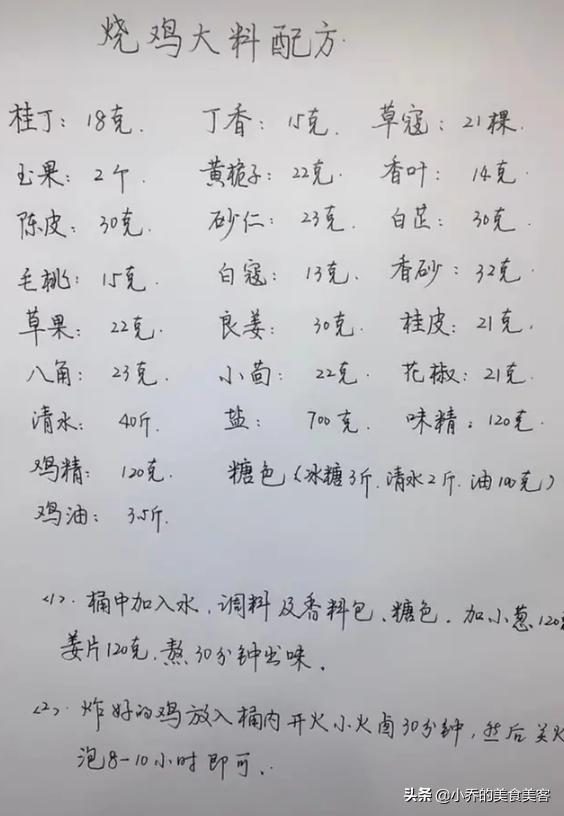 烧鸡大料配方
桂丁：18克． 丁香：15克． 草寇：21棵．
玉果：2个． 黄栀子：22克． 香叶：14克．
陈皮：30克． 砂仁：23克． 白芷：30克．
毛桃：15克． 白寇：13克． 香砂：32克．
草果：22克． 良姜：30克． 桂皮：21克．
八角：23克． 小茴：22克． 花椒：21克．
清水：40斤． 盐：700克． 味精：120克．
鸡精：120克． 糖色（冰糖3斤．清水2斤．油100克）
鸡油：3.5斤．
<1>．桶中加入水，调料及香料包、糖色，加小葱120
姜片120克．熬30分钟出味．
<2>．炸好的鸡放入桶内开火小火卤30分钟，然后关火
泡8-10小时即可．
头条 @小乔的美食美客